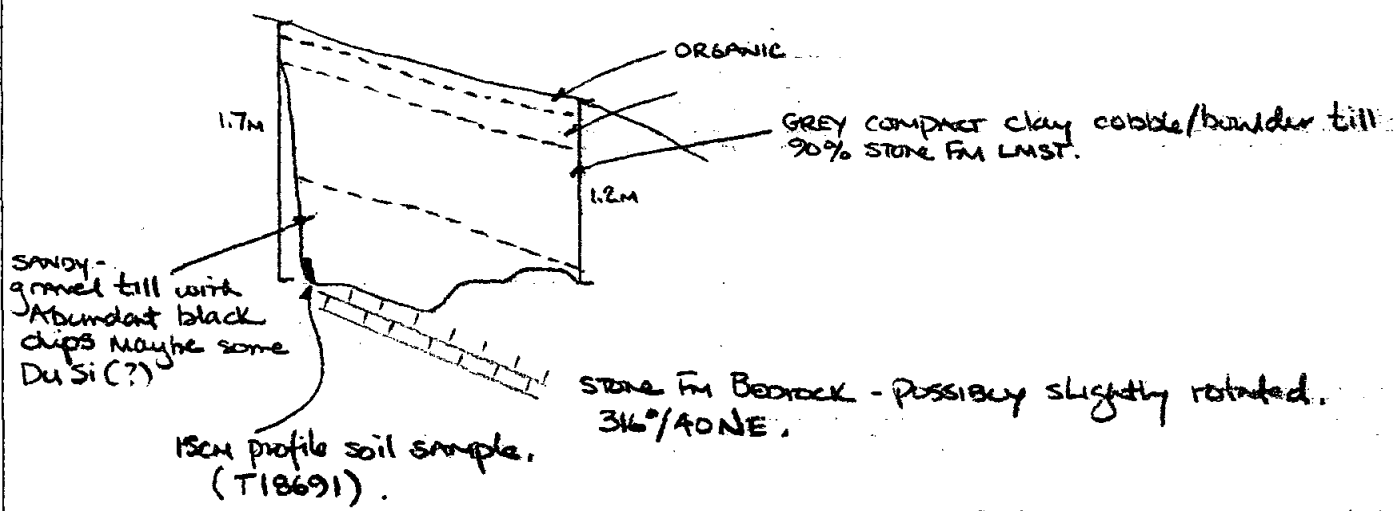 ORGANIC
1.7M
GREY COMPACT clay cobble/boulder till
90% STONE FM LMST.
1.2M
SANDY-
gravel till with
Abundant black
chips Maybe some
Du Si (?)
STONE FM BEDROCK - POSSIBLY slightly rotated.
316°/40NE.
15CM profile soil sample.
(T18691).